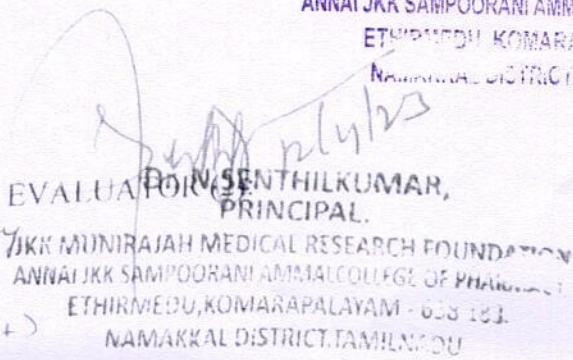 ANNAI JKK SAMPOORANI AMM
KOMARA
EVALUATOR
Dr. N. SENTHILKUMAR,
PRINCIPAL.
JKK MUNIRAJAH MEDICAL RESEARCH FOUNDATION
ANNAI JKK SAMPOORANI AMMAL COLLEGE OF
ETHIRMEDU, KOMARAPALAYAM - 638 183.
NAMAKKAL DISTRICT. TAMILNADU